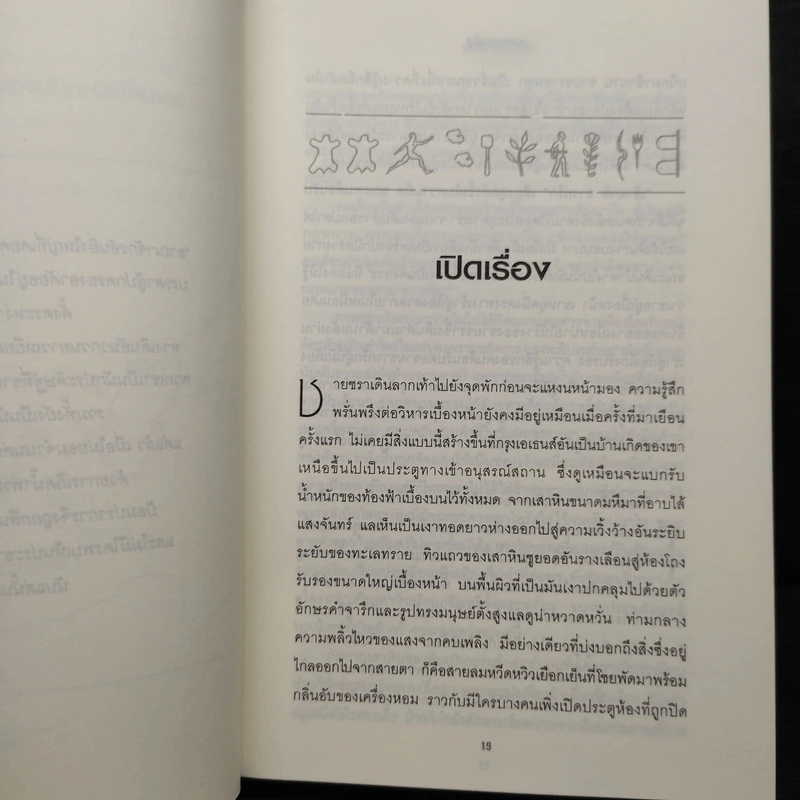 เปิดเรื่อง
ชายชราเดินลากเท้าไปยังจุดพักก่อนจะแหงนหน้ามอง ความรู้สึก
พรั่นพรึงต่อวิหารเบื้องหน้ายังคงมีอยู่เหมือนเมื่อครั้งที่มาเยือน
ครั้งแรก ไม่เคยมีสิ่งแบบนี้สร้างขึ้นที่กรุงเอเธนส์อันเป็นบ้านเกิดของเขา
เหนือขึ้นไปเป็นประตูทางเข้าอนุสรณ์สถาน ซึ่งดูเหมือนจะแบกรับ
น้ำหนักของท้องฟ้าเบื้องบนไว้ทั้งหมด จากเสาหินขนาดมหึมาที่อาบไล้
แสงจันทร์ แลเห็นเป็นเงาทอดยาวห่างออกไปสู่ความเวิ้งว้างอันระยิบ
ระยับของทะเลทราย ทิวแถวของเสาหินชูยอดอันรางเลือนสู่ห้องโถง
รับรองขนาดใหญ่เบื้องหน้า บนพื้นผิวที่เป็นมันเงาปกคลุมไปด้วยตัว
อักษรคำจารึกและรูปทรงมนุษย์ตั้งสูงแลดูน่าหวาดหวั่น ท่ามกลาง
ความพลิ้วไหวของแสงจากคบเพลิง มีอย่างเดียวที่บ่งบอกถึงสิ่งซึ่งอยู่
ไกลออกไปจากสายตา ก็คือสายลมหวีดหวิวเยือกเย็นที่โชยพัดมาพร้อม
กลิ่นอับของเครื่องหอม ราวกับมีใครบางคนเพิ่งเปิดประตูห้องที่ถูกปิด
19